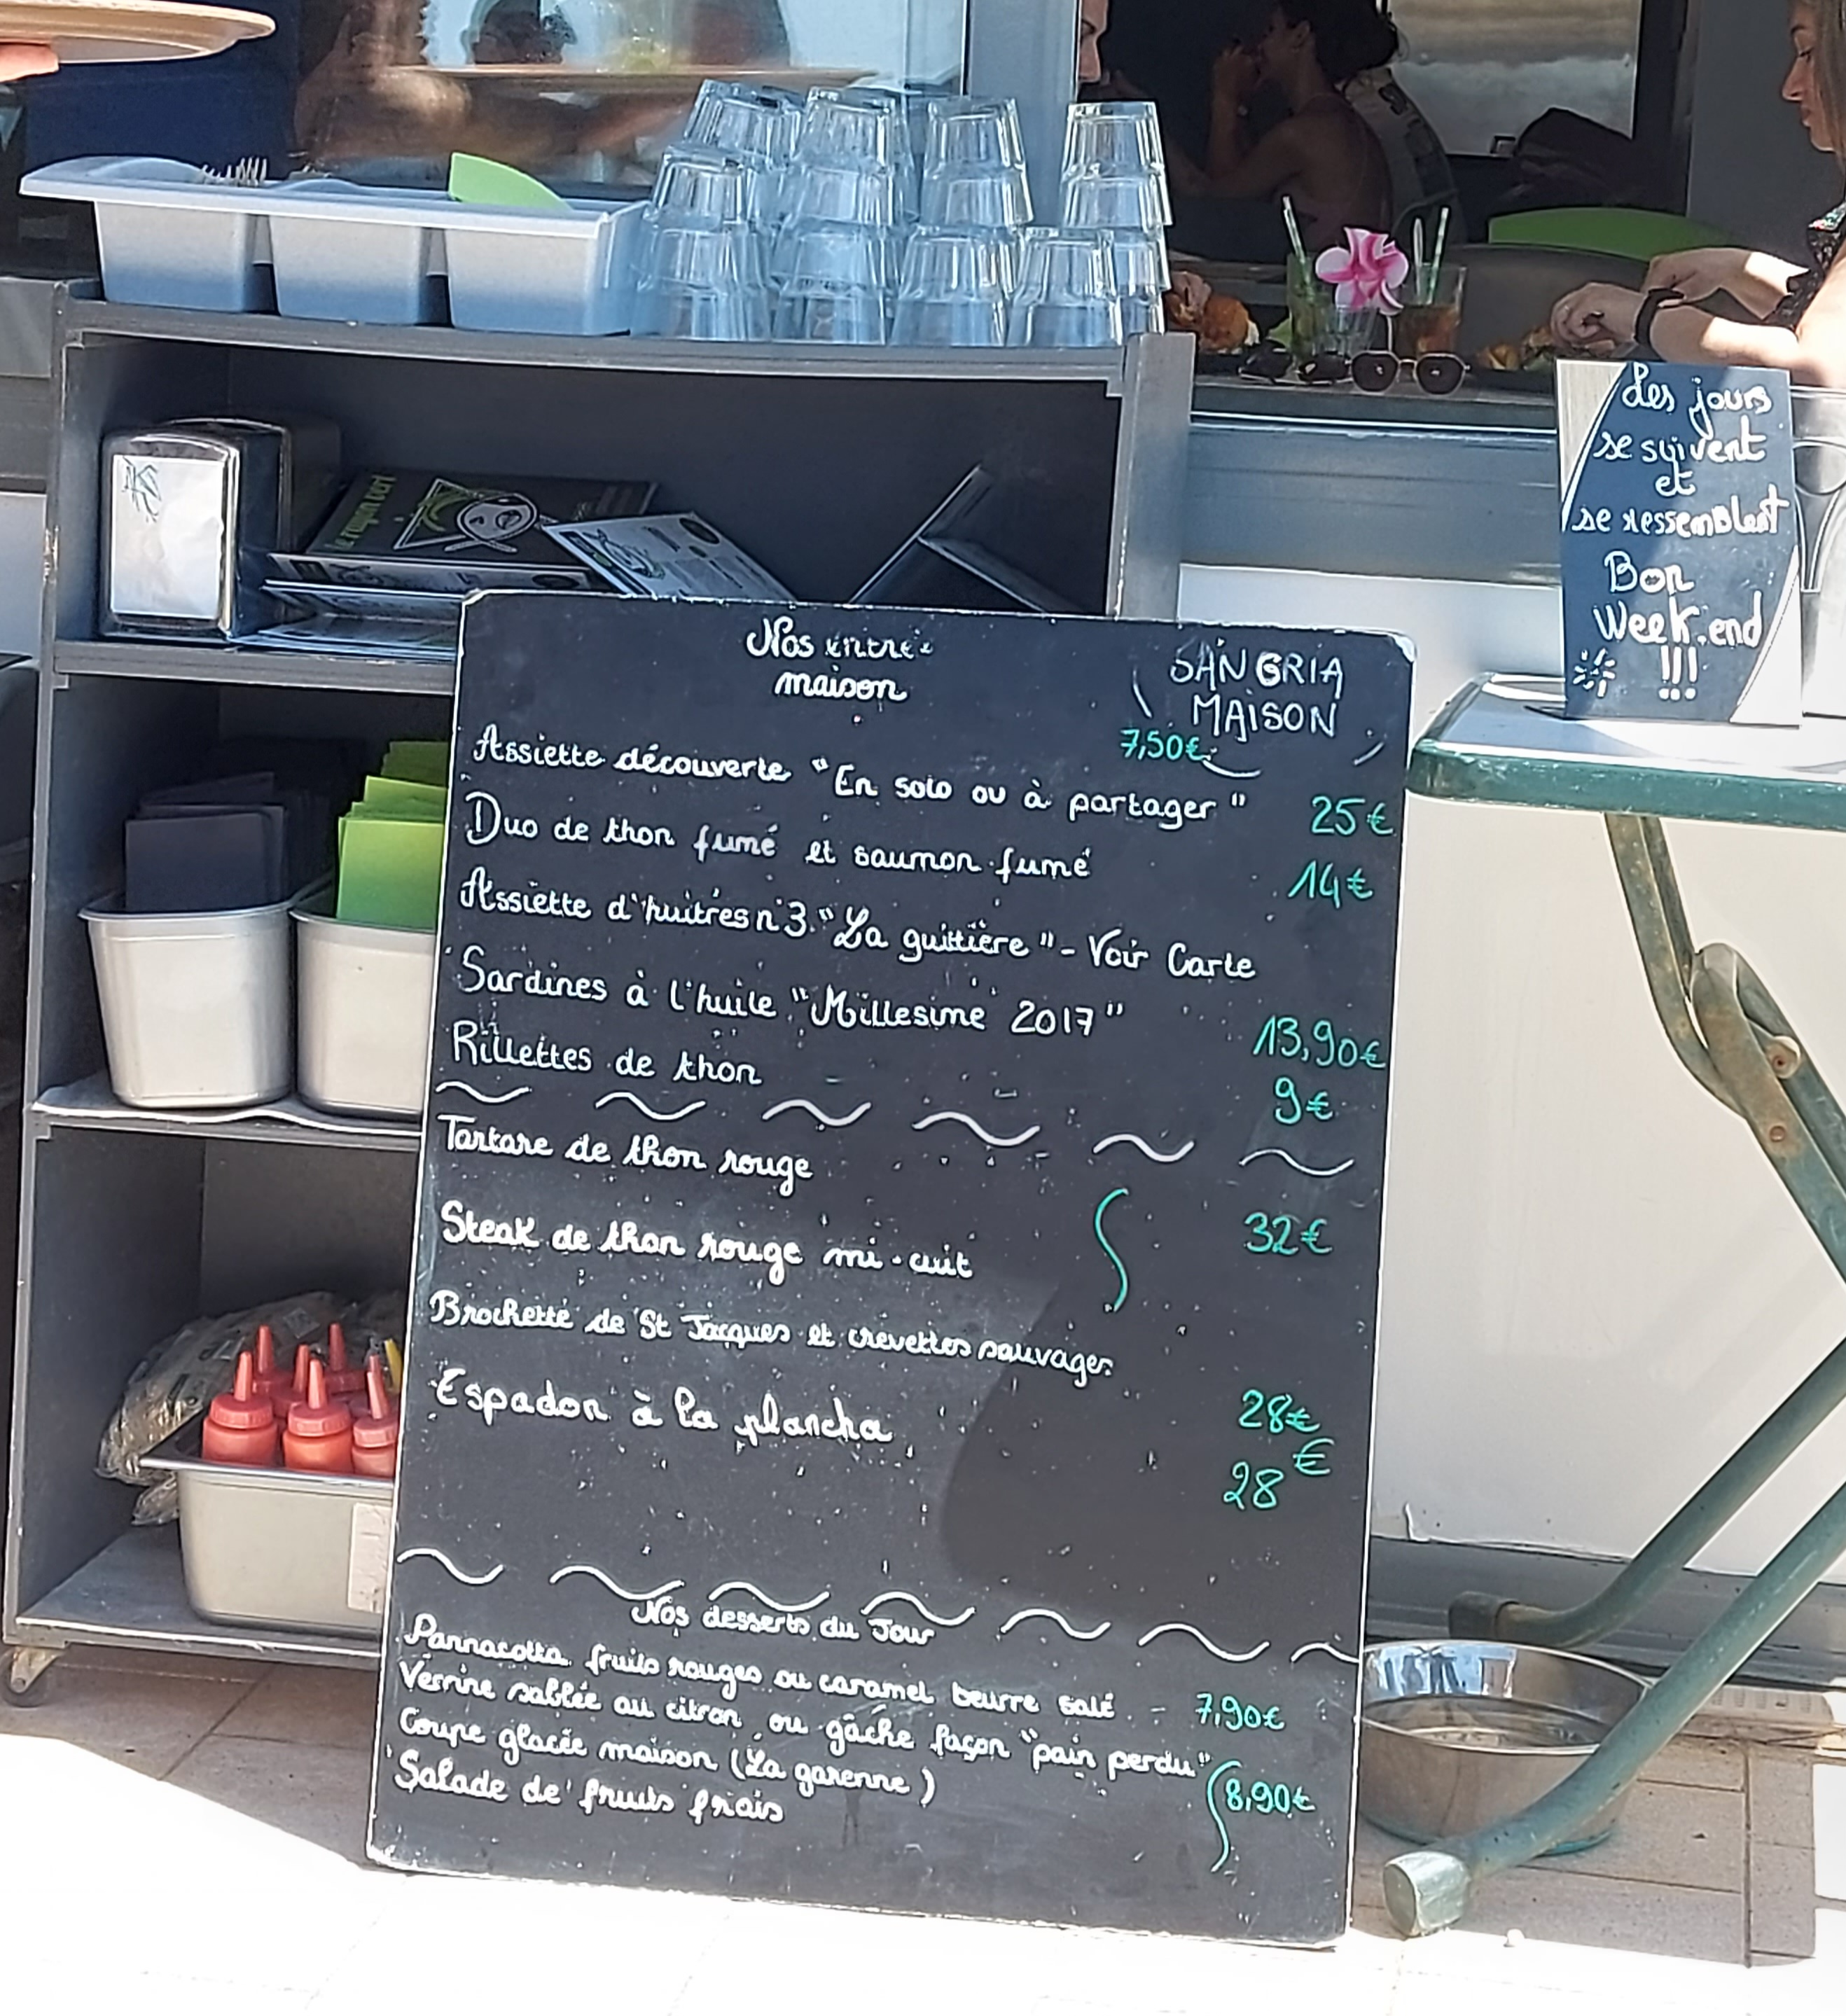 Les jours
se suivent
et
se ressemblent
Bon
Week.end
!!!
le rayon vert
Nos entré
maison
SANGRIA
MAISON
7,50€
Assiette découverte "En solo ou à partager" 25€
Duo de thon fumé et saumon fumé 14€
Assiette d'huitres n°3 "La guittière" - Voir Carte
Sardines à l'huile "Millesime 2017" 13,90€
Rillettes de thon 9€
Tartare de thon rouge
32€
Steak de thon rouge mi-cuit
Brochette de St Jacques et crevettes sauvages 28€
Espadon à la plancha 28€
Nos desserts du Jour
Pannacotta fruits rouges ou caramel beurre salé - 7,90€
Verrine sablée au citron ou gâche façon "pain perdu"
Coupe glacée maison (La garenne) 8,90€
Salade de fruits frais